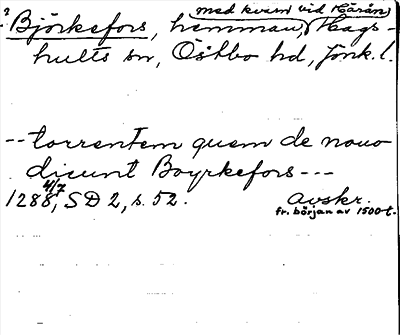 med kvarn vid Härån
? Björkefors, hemman, Hags-
hults sn, Östbo hd, Jönk. l.
-- torrentem quem de nouo
dicunt Boyrkefors ---
1288 4/7, SD 2, s. 52.
Avskr.
fr. början av 1500-t.